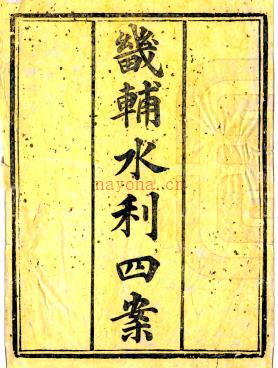 畿輔水利四案
nayona.cn